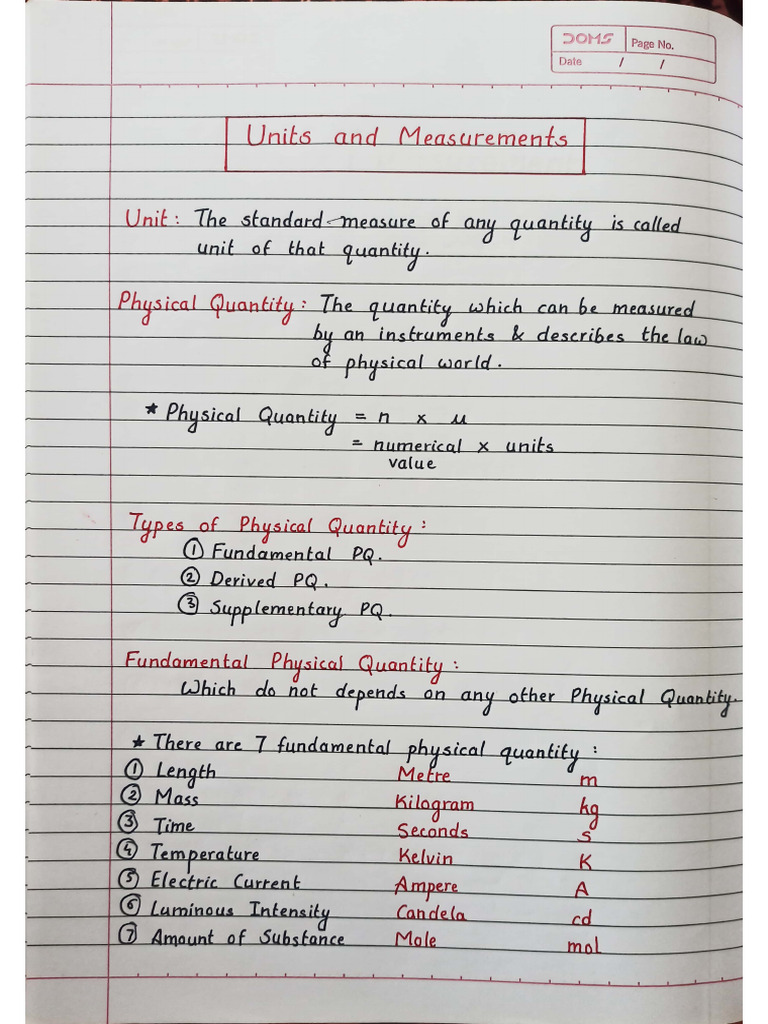 DOMS
Page No.
Date / /
Units and Measurements
Unit: The standard measure of any quantity is called
unit of that quantity.
Physical Quantity: The quantity which can be measured
by an instruments & describes the law
of physical world.
* Physical Quantity = n x u
= numerical x units
value
Types of Physical Quantity:
① Fundamental PQ.
② Derived PQ.
③ Supplementary PQ.
Fundamental Physical Quantity:
Which do not depends on any other Physical Quantity.
* There are 7 fundamental physical quantity:
① Length Metre m
② Mass Kilogram kg
③ Time Seconds s
④ Temperature Kelvin K
⑤ Electric Current Ampere A
⑥ Luminous Intensity Candela cd
⑦ Amount of Substance Mole mol